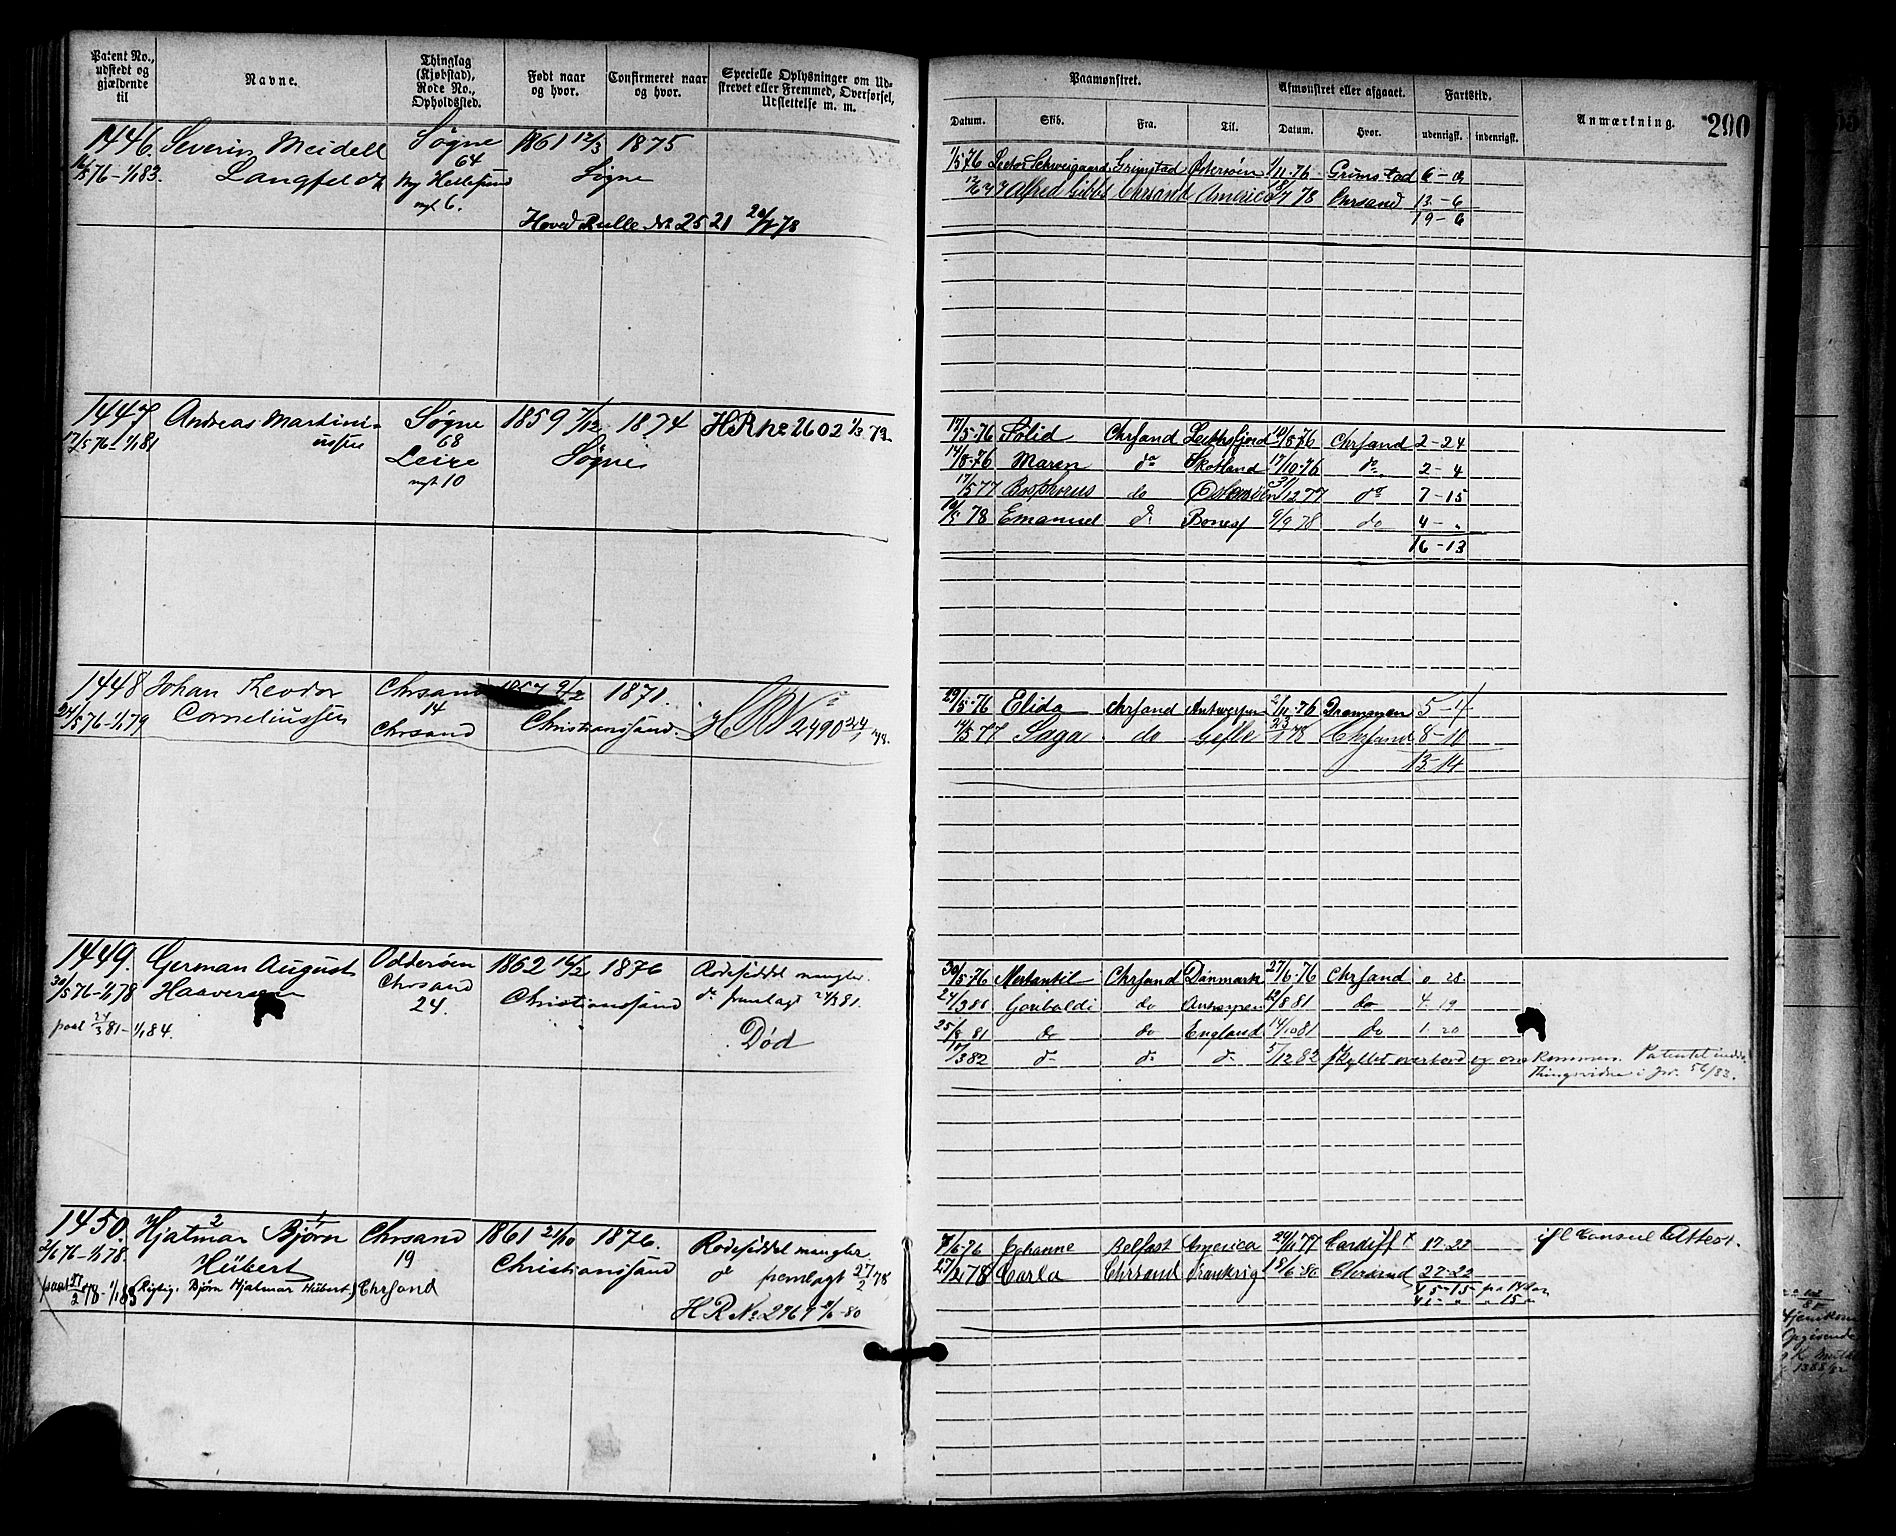 Patent No., udstedt og gjældende til
Navne.
Thinglag (Kjøbstad), Rode No., Opholdssted.
Født naar og hvor.
Confirmeret naar og hvor.
Specielle Oplysninger om Udskrevet eller Fremmed, Overførsel, Udslettelse m. m.
1446. Severin Meidell Søgne 1861 12/3 1875
16/5 76 - 1/1 83. Langfeldt 64 Søgne
Ny Hellesund
nyt 6.
Hoved Rulle No 2521 78
1447 Andreas Martini- Søgne 1859 7/12 1874 H R No 2602
17/5 76 - 1/1 81 ussen 68 Søgne
Leire
nyt 10
1448 Johan Theodor Chrsand 1857 9/2 1871.
24/5 76 - 1/1 79 Corneliussen 14 Christianssand. H R No 2490
Chrsand
1449. German August Odderøen 1862 16/2 1876 Rodeseddel mangler.
30/5 76 - 1/1 78 Haaversen Chrsand Christianssand do fremlagt 24/3 81.
paat 24/3 81 - 1/1 84. 24. Død
1450. Hjalmar Bjørn Chrsand 1861 21/10 1876. Rodeseddel mangler
2/6 76 - 1/1 78. Hübert 19 Christianssand do fremlagt 27/2 78
paat 27/2 78 - 1/1 83 (Rigtig. Bjørn Hjalmar Hübert) Chrsand
H R No 80
Paamønstret.
Afmønstret eller afgaaet.
Fartstid.
Anmærkning.
200
Datum. Skib. Fra. Til. Datum. Hvor. udenrigsk. indenrigsk.
1/5 76 Lector Schweigaard Grimstad Østersøen 1/11 - 76 - Grimstad 6 - 0
Alfred Gibbs Chrsand America 78 Chrsand 13 - 6
19 - 6
17/5 - 76 Solid Chrsand 76 Chrsand 2 - 24
14/8 - 76 Maren do Skotland 17/10 - 76 do 2 - 4
17/5 77 Bosphorus do Østersøen 31/12 77 do 7 - 15
78 Emanuel do Boness 9/9 78 do 4 - "
16 - 13
29/5 - 76 Elida Chrsand Antwerpen 2/11 - 76 Drammen 5 - 4
14/5 77 Saga do Gefle 23/1 78 Chrsand 8 - 10
13 - 14
30/5 - 76 Merkantil Chrsand Danmark 27/6 - 76 Chrsand 0 28
24/3 81 Garibaldi do Antwerpen 12/8 81 do 4 - 19
25/8 81 do do England 14/10 81 do 1 - 20
17/3 82 do do do 5/12 82 skyllet overbord og om-
kommen. Patentet indd.
Thingsvidne i Jr. 56/83.
76 Johanne Belfast America 77 Cardiff x 17 - 23 ifl Consul Attest.
27/2 78 Carla Chrsand Frankrig 18/6 - 80 Chrsand 27 - 22
45 - 15